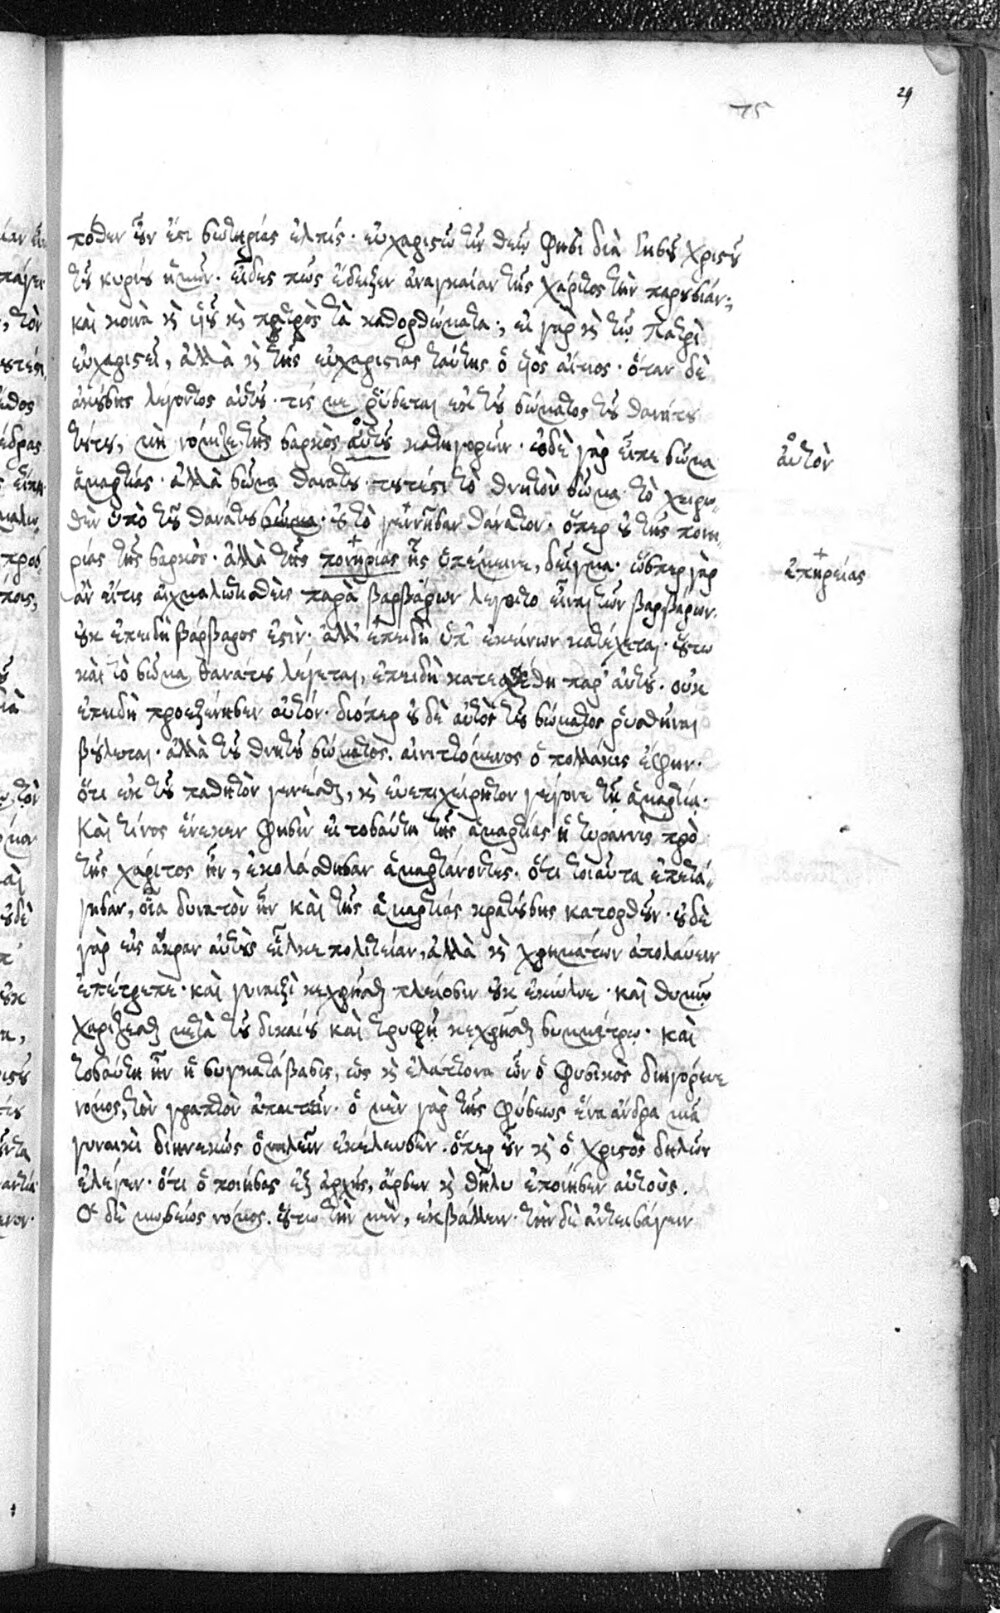 29
πόθεν οὖν ἔστι σωτηρίας ἐλπίς. εὐχαριστῶ τῷ θεῷ φησὶ διὰ Ἰησοῦ Χριστοῦ
τοῦ κυρίου ἡμῶν. εἶδες πῶς ἔδειξεν ἀναγκαίαν τῆς χάριτος τὴν παρουσίαν;
καὶ κοινὰ καὶ υἱοῦ καὶ πατρὸς τὰ κατορθώματα; εἰ γὰρ καὶ τῷ πατρὶ
εὐχαριστεῖ, ἀλλὰ καὶ τῆς εὐχαριστίας ταύτης ὁ υἱὸς αἴτιος. ὅταν δὲ
ἀκούσῃς λέγοντος αὐτοῦ. τίς με ῥύσεται ἐκ τοῦ σώματος τοῦ θανάτου
τούτου, μὴ νόμιζε τῆς σαρκὸς αὐτοῦ κατηγορεῖν. οὐδὲ γὰρ εἶπε σῶμα
αὐτὸν
ἁμαρτίας. ἀλλὰ σῶμα θανάτου. τουτέστι τὸ θνητὸν σῶμα τὸ χειρω-
θὲν ὑπὸ τοῦ θανάτου σῶμα. οὐ τὸ γεννῆσαν θάνατον. ὅπερ οὐ τῆς πονη-
ρίας τῆς σαρκὸς. ἀλλὰ τῆς πονηρίας ἧς ὑπέμεινε, δεῖγμα. ὥσπερ γὰρ
ἐπηρείας
ἂν εἴ τις αἰχμαλωτισθεὶς παρὰ βαρβάρων λέγοιτο εἶναι τῶν βαρβάρων.
οὐκ ἐπειδὴ βάρβαρος ἐστὶν. ἀλλ' ἐπειδὴ ὑπ' ἐκείνων κατέχεται. οὕτω
καὶ τὸ σῶμα θανάτου λέγεται, ἐπειδὴ κατεσχέθη παρ' αὐτοῦ. οὐκ
ἐπειδὴ προεξένησεν αὐτόν. διόπερ οὐδὲ αὐτὸς τοῦ σώματος ῥυσθῆναι
βούλεται. ἀλλὰ τοῦ θνητοῦ σώματος. αἰνιττόμενος ὃ πολλάκις ἔφην.
ὅτι ἐκ τοῦ παθητὸν γενέσθαι, καὶ εὐεπιχείρητον γέγονε τῇ ἁμαρτίᾳ.
Καὶ τίνος ἕνεκεν φησὶν εἰ τοσαύτη τῆς ἁμαρτίας ἡ τυραννὶς πρὸ
τῆς χάριτος ἦν, ἐκολάσθησαν ἁμαρτάνοντες. ὅτι τοιαῦτα ἐπετά-
γησαν, οἷα δυνατὸν ἦν καὶ τῆς ἁμαρτίας κρατούσης κατορθοῦν. οὐδὲ
γὰρ εἰς ἄκραν αὐτοὺς εἷλκε πολιτείαν, ἀλλὰ καὶ χρημάτων ἀπολαύειν
ἐπέτρεπε. καὶ γυναιξὶ κεχρῆσθαι πλείοσιν οὐκ ἐκώλυε. καὶ θυμῷ
χαρίζεσθαι μετὰ τοῦ δικαίου καὶ τρυφῇ κεχρῆσθαι συμμέτρῳ. καὶ
τοσαύτη ἦν ἡ συγκατάβασις, ὡς καὶ ἐλάττονα ὧν ὁ φυσικὸς διηγόρευε
νόμος, τὸν γραπτὸν ἀπαιτεῖν. ὁ μὲν γὰρ τῆς φύσεως ἕνα ἄνδρα μιᾷ
γυναικὶ διηνεκῶς ὁμιλεῖν ἐκέλευσεν. ὅπερ οὖν καὶ ὁ Χριστὸς δηλῶν
ἔλεγεν. ὅτι ὁ ποιήσας ἐξ ἀρχῆς, ἄρσεν καὶ θῆλυ ἐποίησεν αὐτοὺς.
Ὁ δὲ μωσέως νόμος. οὕτω τὴν μὲν, ἐκβάλλειν. τὴν δὲ ἀντεισάγειν